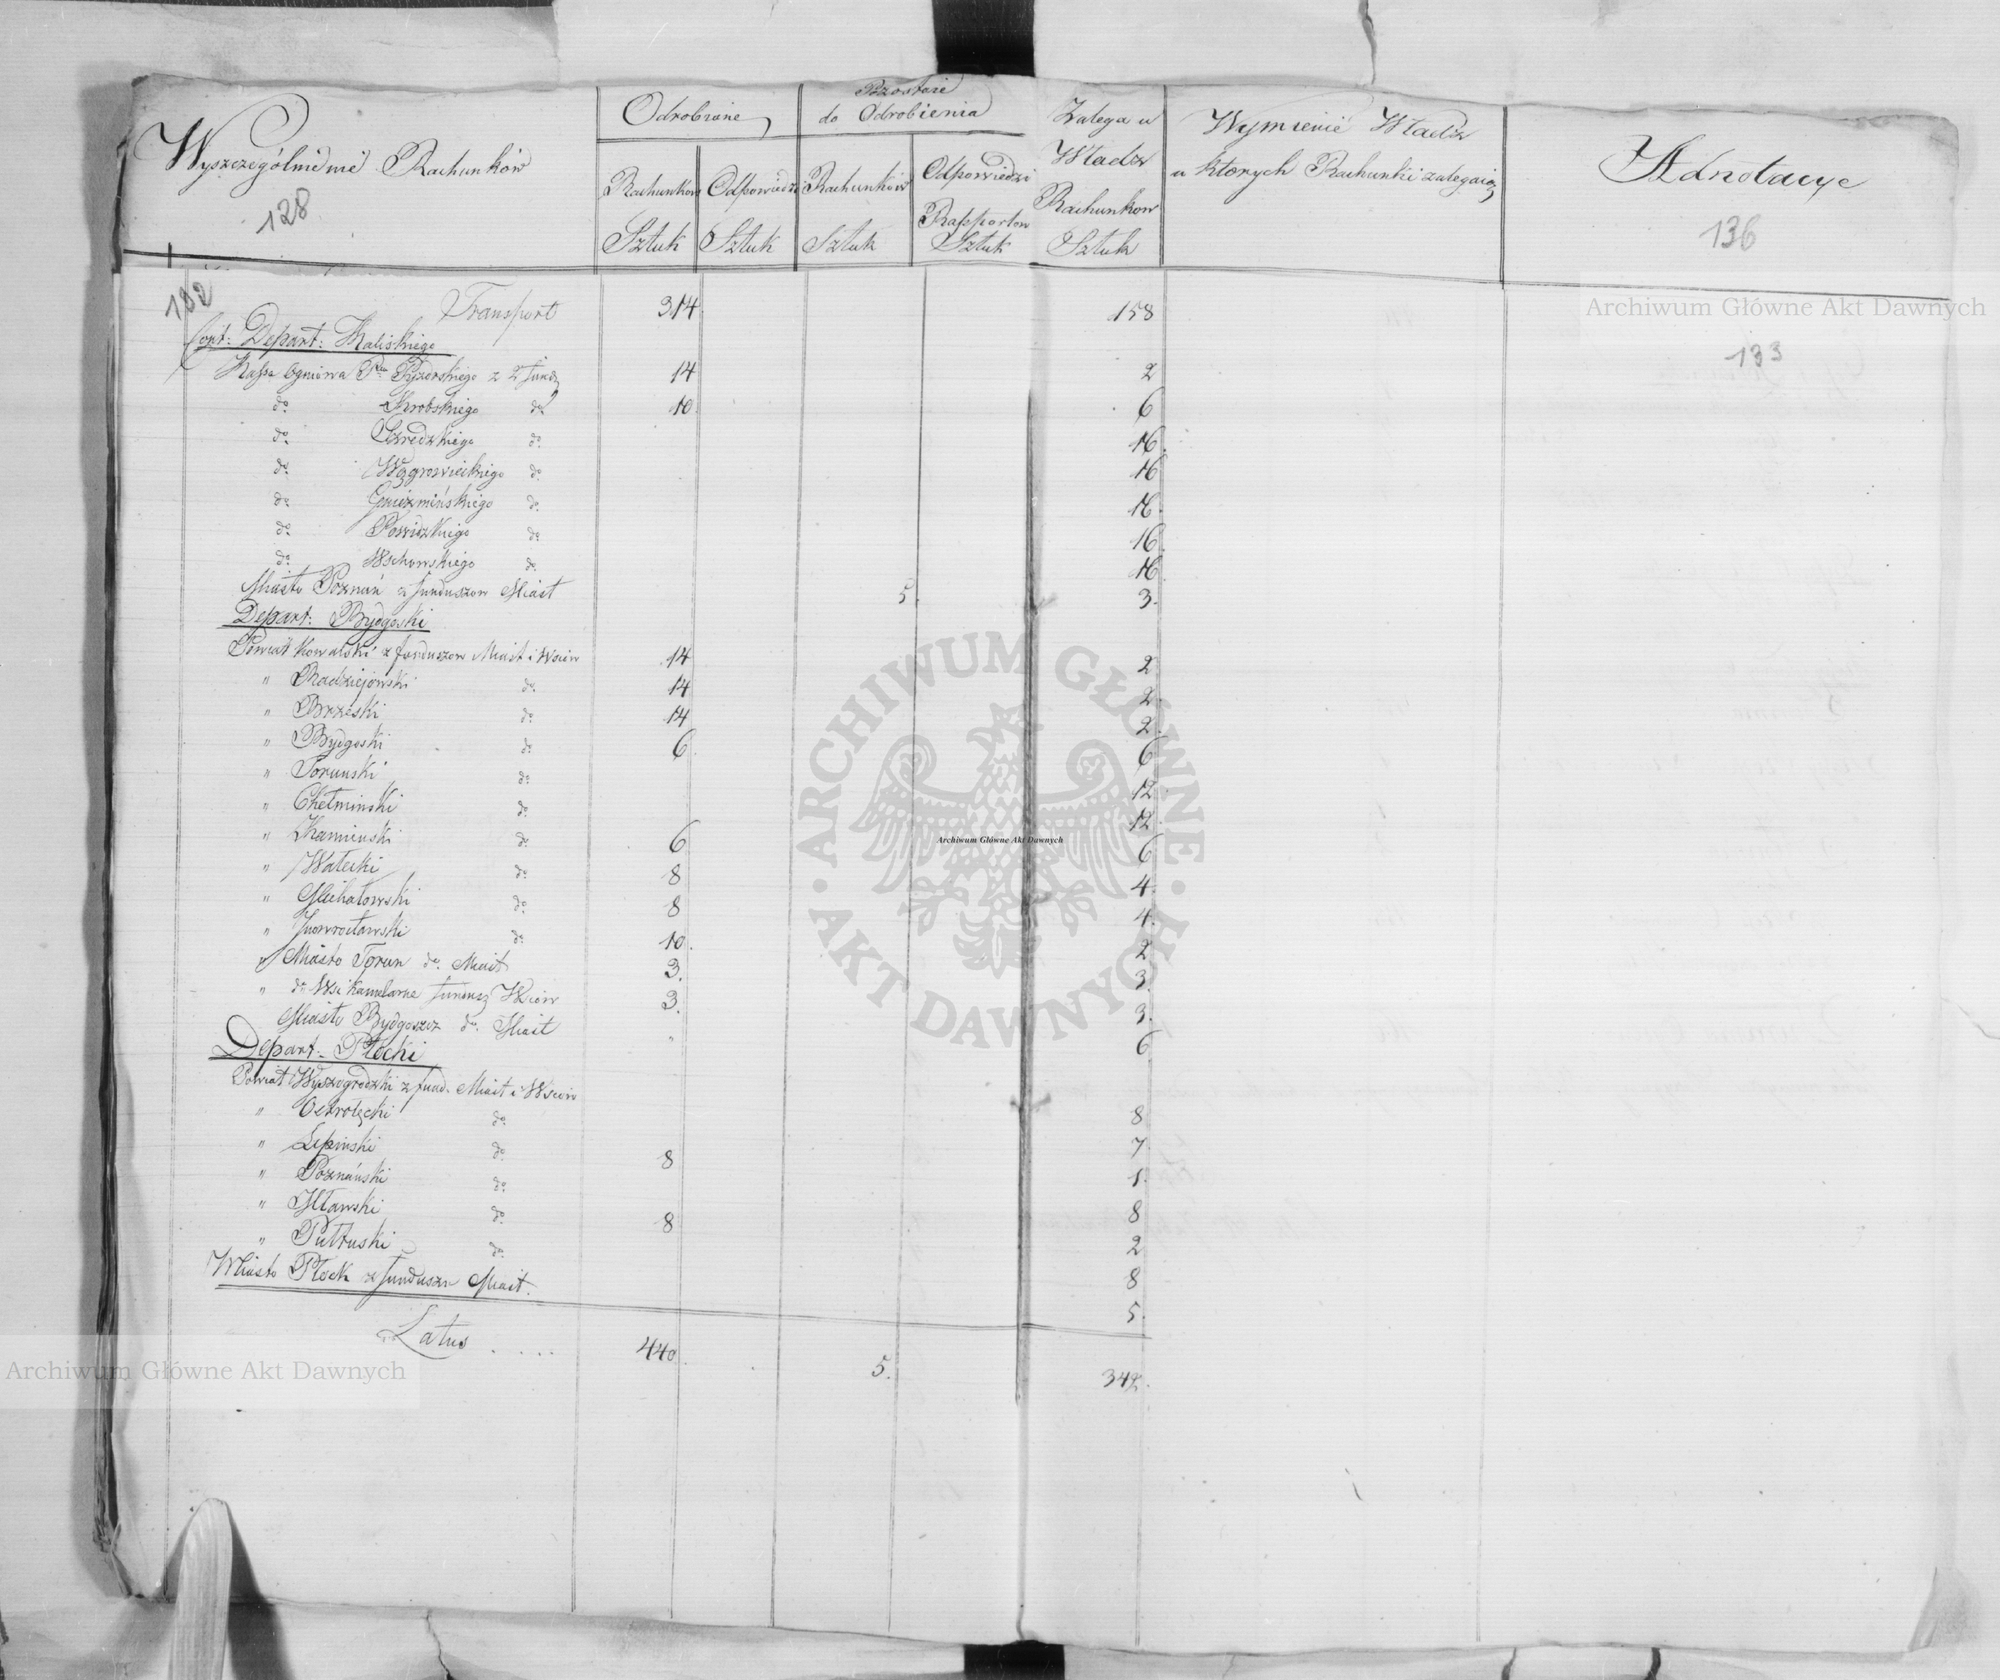 Wyszczególnienie Rachunków
128
Odrobione
Rachunków Sztuk
Odpowiedzi Sztuk
Pozostaie do Odrobienia
Rachunków Sztuk
Odpowiedzi Rapportow Sztuk
Zalega u Władz Rachunkow Sztuk
Wymienić Władz u ktorych Rachunki zalegaią
Adnotacye
136
Archiwum Główne Akt Dawnych
133
132
Transport 314 158
Depart: Kaliskiego
Kassa Ogniowa Pttu Pyzerskiego z 2 fund 14 2
do Krobskiego do 10. 6
do Szredzkiego do 16.
do Wągrowieckiego do 16
do Gnieźnińskiego do 16.
do Powidzkiego do 16.
do Wschowskiego do 16.
Miasto Poznań z funduszow Miast 5. 3.
Depart: Bydgoski
Powiat Kowalski z funduszow Miast i Wsiow 14 2
" Radziejowski do 14 2.
" Brzeski do 14 2.
" Bydgoski do 6. 6
" Toruński do 12.
" Chełminski do 12.
" Kamienski do 6 6
" Wałecki do 8 4.
" Michałowski do 8 4.
" Jnowrocławski do 10. 2
" Miasto Torun do Miast 3. 3.
" do Wsi Kamelarne fundusz Wsiow 3. 3.
Miasto Bydgoszcz do Miast " 6
Depart. Płocki
Powiat Wyszogrodzki z fund. Miast i Wsiow 8
" Ostrołęcki do 7
" Lipinski do 8 1.
" Poznański do 8
" Mławski do 8 2
" Pułtuski do 8
Miasto Płock z funduszu Miast. 5.
Latus . . . . 440. 5. 342.
ARCHIWUM GŁÓWNE AKT DAWNYCH
Archiwum Główne Akt Dawnych
Archiwum Główne Akt Dawnych